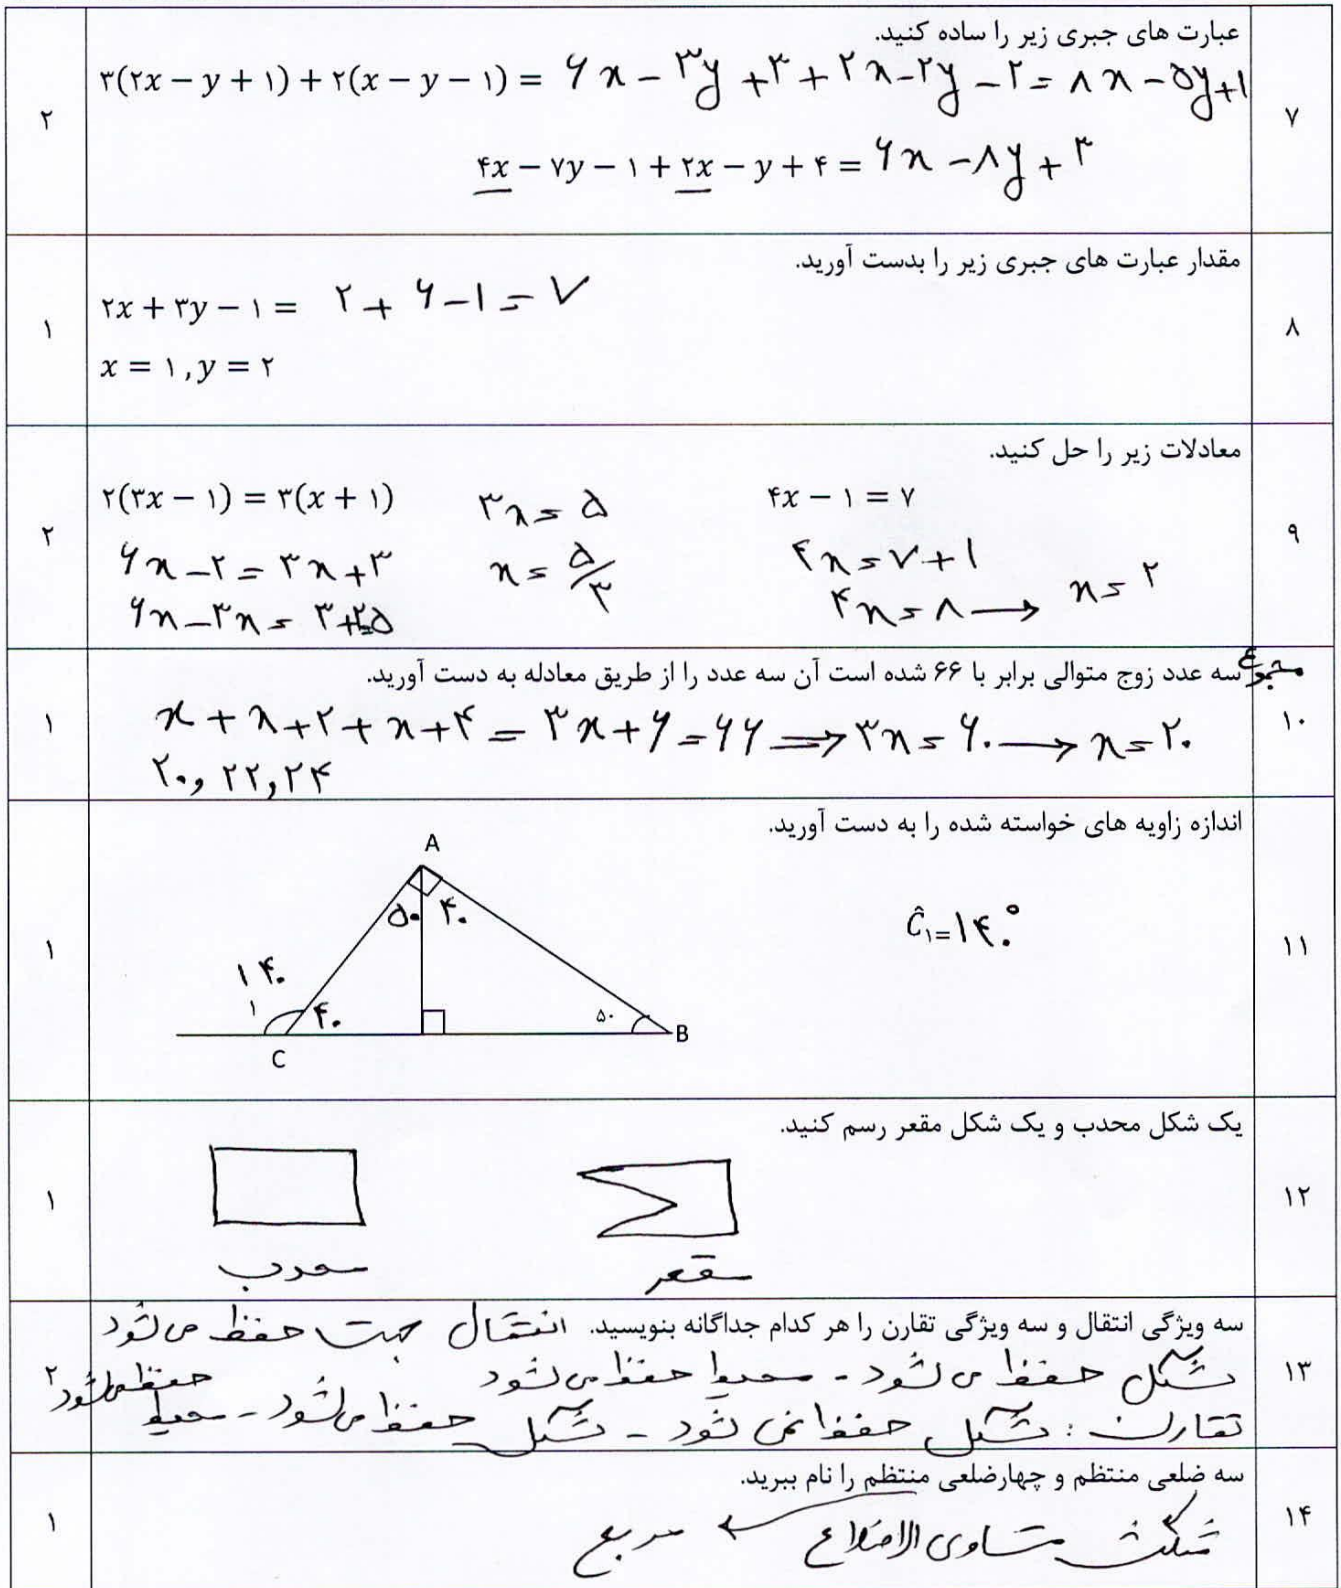 عبارت های جبری زیر را ساده کنید.
۳(۲x − y + ۱) + ۲(x − y − ۱) = ۶x − ۳y + ۳ + ۲x − ۲y − ۲ = ۸x − ۵y + ۱
۷
۲
۴x − ۷y − ۱ + ۲x − y + ۴ = ۶x − ۸y + ۳
مقدار عبارت های جبری زیر را بدست آورید.
۲x + ۳y − ۱ = ۲ + ۶ − ۱ = ۷
۸
۱
x = ۱, y = ۲
معادلات زیر را حل کنید.
۲(۳x − ۱) = ۳(x + ۱)
۶x − ۲ = ۳x + ۳
۶x − ۳x = ۳+۲=۵
۳x = ۵
x = ۵/۳
۴x − ۱ = ۷
۴x = ۷ + ۱
۴x = ۸ → x = ۲
۹
۲
مجموع سه عدد زوج متوالی برابر با ۶۶ شده است آن سه عدد را از طریق معادله به دست آورید.
۱۰
۱
x + x + ۲ + x + ۴ = ۳x + ۶ = ۶۶ ⟹ ۳x = ۶۰ → x = ۲۰
۲۰, ۲۲, ۲۴
اندازه زاویه های خواسته شده را به دست آورید.
A
۵۰ ۴۰
Ĉ₁=۱۴۰°
۱۱
۱
۱۴۰
۱ ۴۰ ۵۰ B
C
یک شکل محدب و یک شکل مقعر رسم کنید.
۱۲
۱
محدب مقعر
سه ویژگی انتقال و سه ویژگی تقارن را هر کدام جداگانه بنویسید. انتقال جهت حفظ می شود
شکل حفظ می شود - محیط حفظ می شود
۱۳
۲
تقارن : شکل حفظ نمی شود - شکل حفظ می شود - محیط حفظ می شود
سه ضلعی منتظم و چهارضلعی منتظم را نام ببرید.
۱۴
۱
مثلث متساوی الاضلاع ← مربع